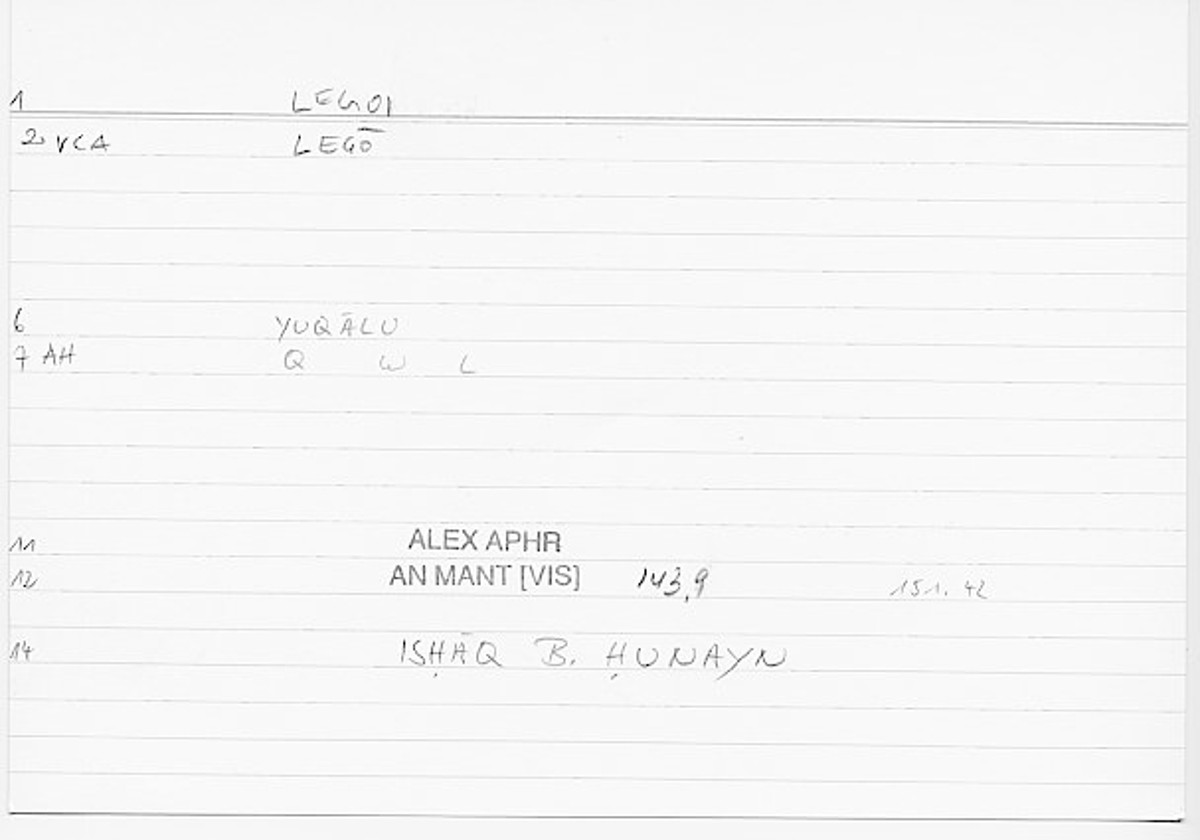 1 LEGOI
2 VCA LEGŌ
6 YUQĀLU
7 AH Q W L
11 ALEX APHR
12 AN MANT [VIS] 143,9 151.42
14 ISḤĀQ B. ḤUNAYN